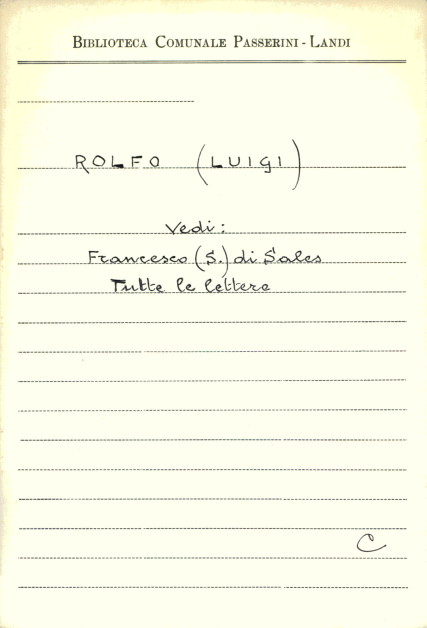 BIBLIOTECA COMUNALE PASSERINI - LANDI
ROLFO (LUIGI)
Vedi:
Francesco (S.) di Sales
Tutte le lettere
C